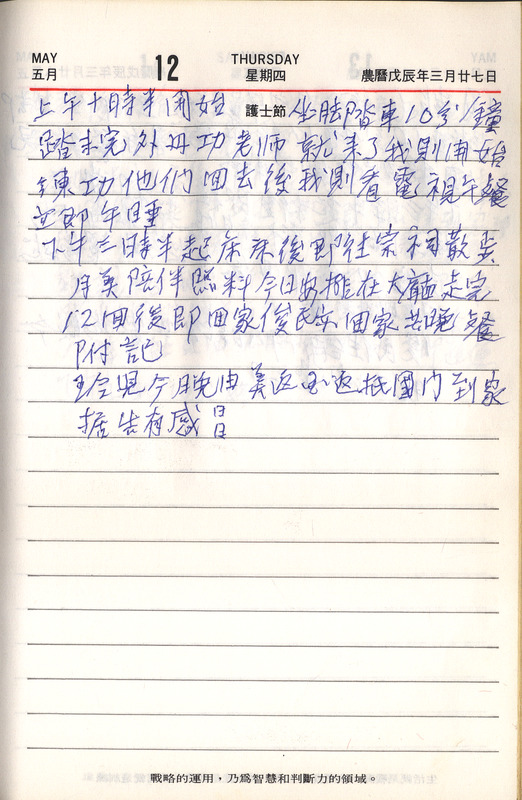 MAY 12 THURSDAY
五月 星期四 農曆戊辰年三月廿七日
護士節
上午十時半開始 坐腳踏車10分鐘
踏未完外丹功老师就来了我則開始
練功他们回去後我則看電視午餐
立即午睡
下午三時半起床床後即往宗祠散步
月美陪伴照料今日安推在大廳走完
12回後即回家俊民亦回家共晚餐
附記
玲児今晚由美返国返抵國门到家
据告有感冒
戰略的運用，乃為智慧和判斷力的領域。